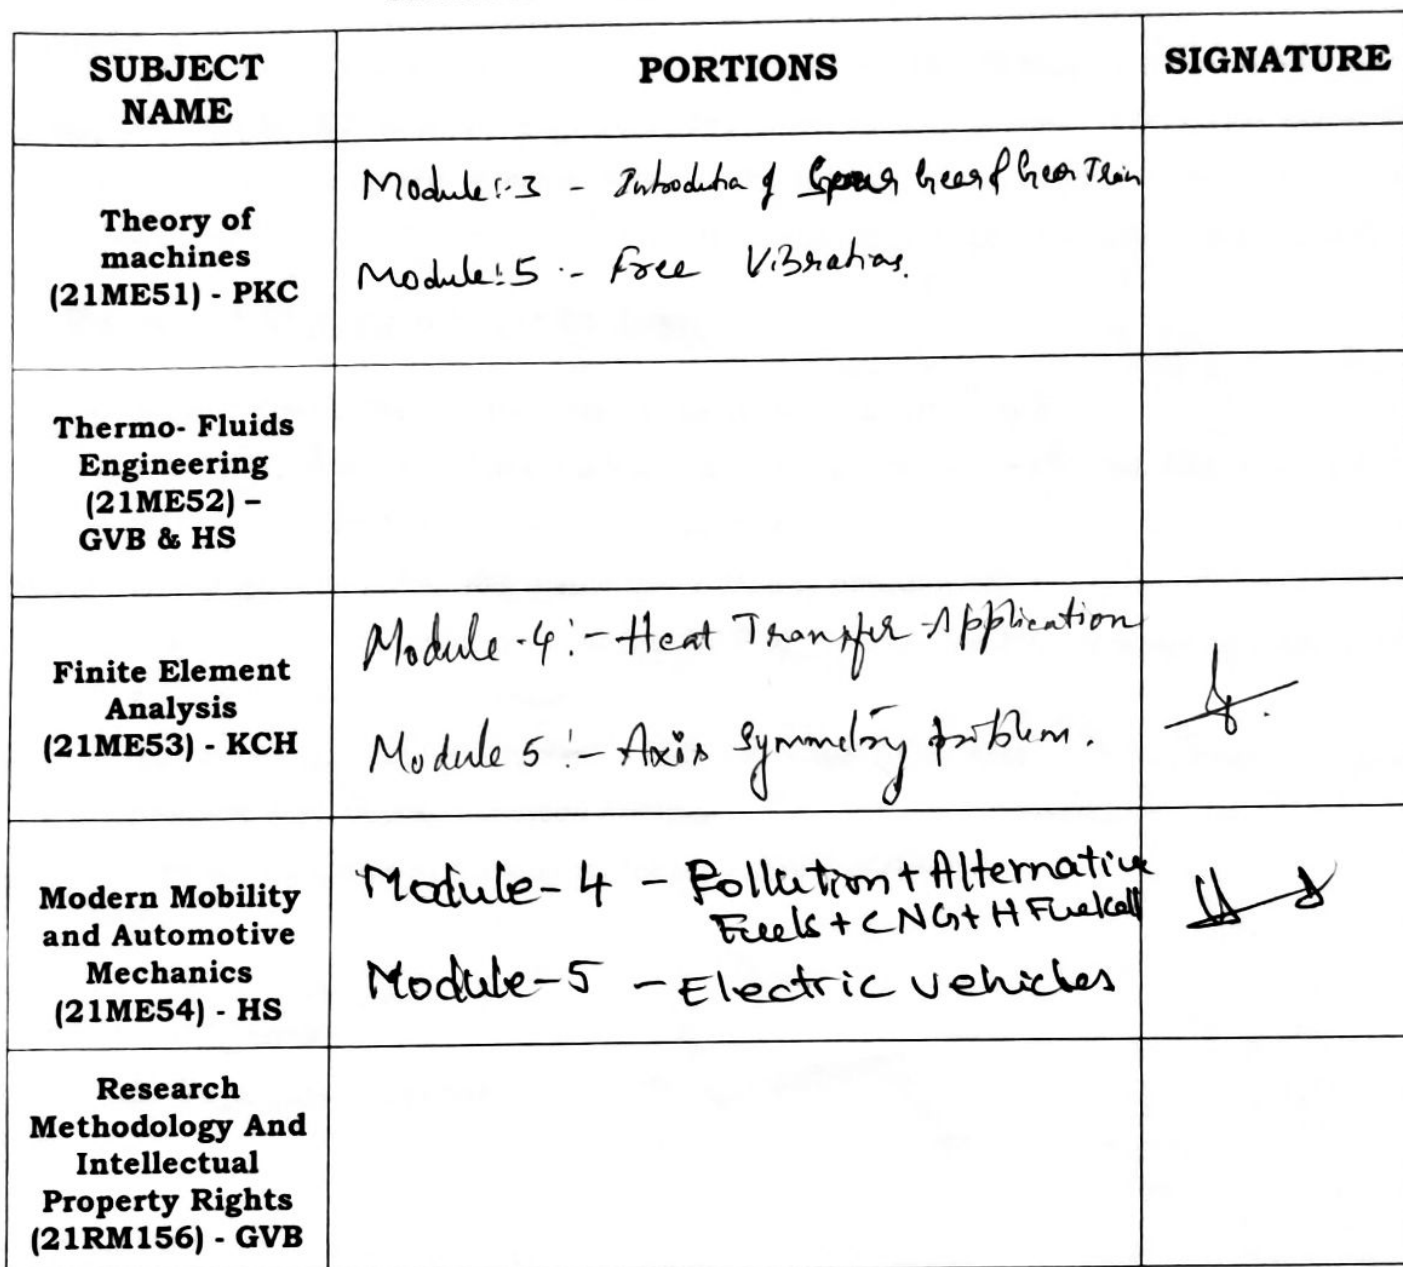 SUBJECT NAME
PORTIONS
SIGNATURE
Theory of
machines
(21ME51) - PKC
Module:-3 - Introduction of Spur Gear & Gear Train
Module:5 :- Free Vibrations.
Thermo- Fluids
Engineering
(21ME52) –
GVB & HS
Finite Element
Analysis
(21ME53) - KCH
Module-4:- Heat Transfer Application
Module 5:- Axis symmetry problem.
Modern Mobility
and Automotive
Mechanics
(21ME54) - HS
Module-4 - Pollution + Alternative
Fuels + CNG + H Fuelcell
Module-5 - Electric vehicles
Research
Methodology And
Intellectual
Property Rights
(21RM156) - GVB